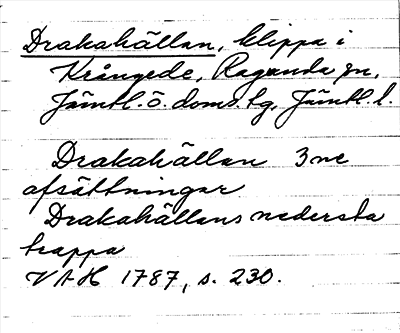 Drakahällan, klippa i
Krångede, Ragunda sn,
Jämtl. ö. doms.tg, Jämtl. l.
Drakahällan 3ne
afsättningar
Drakahällans nedersta
trappa
VAH 1787, s. 230.